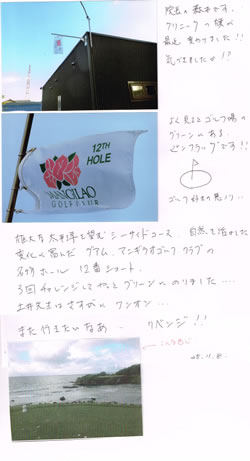 院長の藪本です。
クリニックの横が
最近 変わりました!!
気づきましたか!?
12TH
HOLE
MANGILAO
GOLF CLUB
よく見るとゴルフ場の
グリーンにある
ピンフラッグです!!
ゴルフ好きの見人
雄大な太平洋を望むシーサイドコース. 自然を活かした
変化に富んだ グアム. マンギラオゴルフクラブの
名物ホール 12番ショート.
3回チャレンジしてやっとグリーンにのりました....
土井先生はさすがに ワンオン...
また行きたいなあ.. リベンジ!!